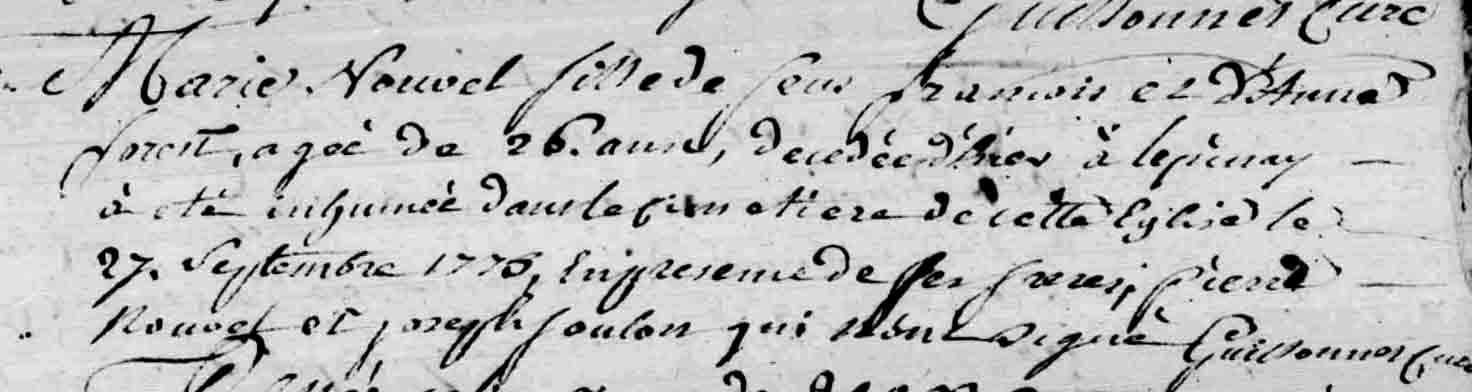 Guissonnet Curé
Marie Nouvel fille de feu francois et d'Anne
forest, ageé de 26. ans, decedée d'hier à lepinay —
à eté inhumée dans le cimetiere de cette Eglise le
27. Septembre 1776, En presence de ses freres, pierre —
Nouvel et joseph foulon qui n'ont signé Guissonnet Curé